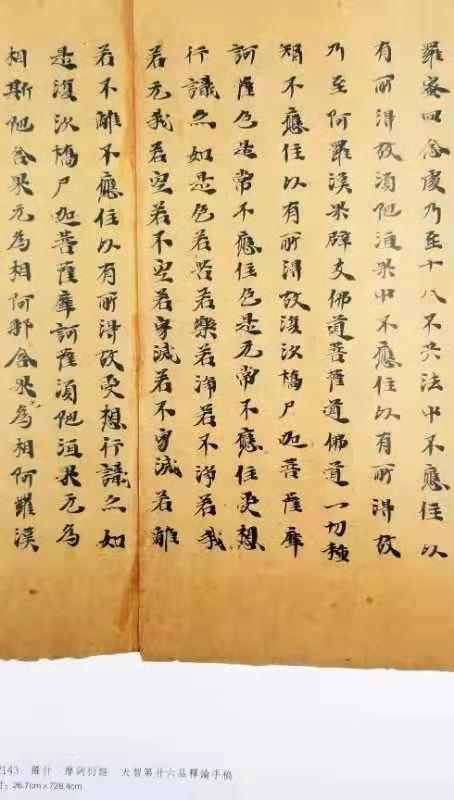 羅蜜四念處乃至十八不共法中不應住以
有所得故須陁洹果中不應住以有所得故
乃至阿羅漢果辟支佛道菩薩道佛道一切種
智不應住以有所得故復次憍尸迦菩薩摩
訶薩色是常不應住色是无常不應住受想
行識亦如是色若苦若樂若淨若不淨若我
若无我若空若不空若寂滅若不寂滅若離
若不離不應住以有所得故受想行識亦如
是復次憍尸迦菩薩摩訶薩須陁洹果无為
相斯陁含果无為相阿那含果无為相阿羅漢
2143 羅什 摩訶衍經 大智第廿六品釋論手稿
寸：26.7cm×728.4cm